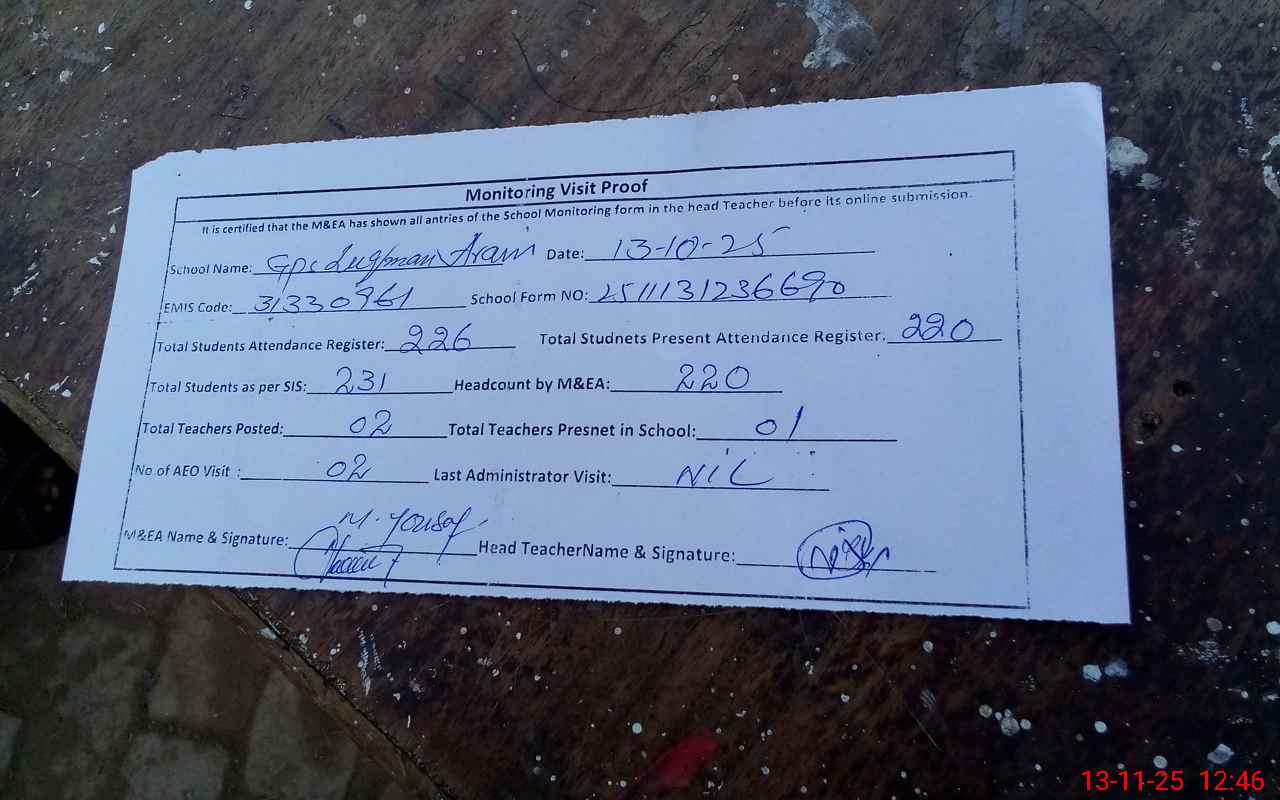 Monitoring Visit Proof
It is certified that the M&EA has shown all antries of the School Monitoring form in the head Teacher before its online submission.
School Name: Gps Luqman Aram Date: 13-10-25
EMIS Code: 31330961 School Form NO: 2511131236690
Total Students Attendance Register: 226 Total Studnets Present Attendance Register. 220
Total Students as per SIS: 231 Headcount by M&EA: 220
Total Teachers Posted: 02 Total Teachers Presnet in School: 01
No.of AEO Visit : 02 Last Administrator Visit: NIL
M&EA Name & Signature: M. Yousaf Head TeacherName & Signature:
13-11-25 12:46